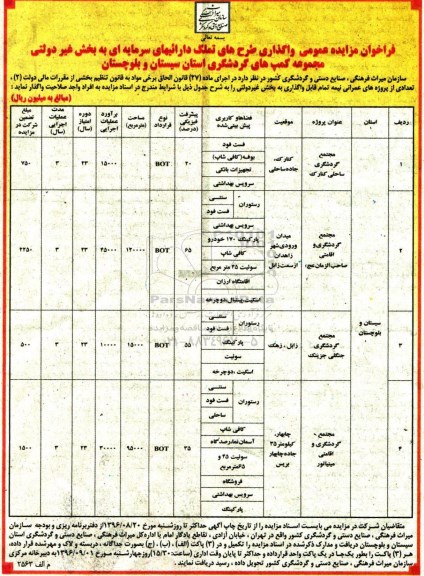 بسمه تعالی
فراخوان مزایده عمومی واگذاری طرح های تملک دارائیهای سرمایه ای به بخش غیر دولتی
مجموعه کمپ های گردشگری استان سیستان و بلوچستان
سازمان میراث فرهنگی ، صنایع دستی و گردشگری کشور در نظر دارد در اجرای ماده (۲۷) قانون الحاق برخی مواد به قانون تنظیم بخشی از مقررات مالی دولت (۲) ،
تعدادی از پروژه های عمرانی نیمه تمام قابل واگذاری به بخش غیردولتی را به شرح جدول ذیل با شرایط مندرج در اسناد مزایده به افراد واجد صلاحیت واگذار نماید :
(مبالغ به میلیون ریال)
ردیف استان عنوان پروژه موقعیت فضاها و کاربری پیش بینی شده پیشرفت فیزیکی (درصد) نوع قرارداد مساحت (مترمربع) برآورد عملیات اجرایی دوره امتیاز (سال) مدت عملیات اجرایی (سال) مبلغ تضمین شرکت در مزایده
سیستان و بلوچستان
۱ مجتمع گردشگری ساحلی کنارک کنارک، جاده ساحلی
فست فود
بوفه(کافی شاپ)
تجهیزات بانکی
سرویس بهداشتی
۲۰ BOT ۱۵۰۰۰ ۲۳ ۳ ۷۵۰
۲ مجتمع گردشگری و اقامتی صاحب الزمان عج میدان ورودی شهر زاهدان از سمت زابل
رستوران سنتی
فست فود
سرویس بهداشتی
پارکینگ ۱۷۰ خودرو
کافی شاپ
سوئیت ۲۵ متر مربع
اقامتگاه ارزان
اسکیت،پینتبال،دوچرخه
۶۵ BOT ۱۲۰۰۰۰ ۴۵۰۰۰ ۲۳ ۳ ۲۲۵۰
۳ مجتمع گردشگری جنگلی جزینک زابل ، زهک
رستوران سنتی
فست فود
پارکینگ
سوئیت
اسکیت ،دوچرخه
۵۵ BOT ۱۵۰۰۰ ۱۰۰۰۰ ۲۳ ۳ ۵۰۰
۴ مجتمع گردشگری و اقامتی مینیاتور چابهار، کیلومتر ۳۵ جاده چابهار بریس
رستوران سنتی
فست فود
ساحلی
کافی شاپ
سوئیت ۲۵ و
فروشگاه
سرویس بهداشتی
پارکینگ
۳۵ BOT ۹۵۰۰۰ ۳۰۰۰۰ ۲۳ ۳ ۱۵۰۰
متقاضیان شرکت در مزایده می بایست اسناد مزایده را از تاریخ چاپ آگهی حداکثر تا روزشنبه مورخ ۱۳۹۶/۰۸/۲۰ از دفتربرنامه ریزی و بودجه سازمان
میراث فرهنگی ، صنایع دستی و گردشگری کشور واقع در تهران ، خیابان آزادی ، تقاطع یادگار امام یا اداره کل میراث فرهنگی ، صنایع دستی و گردشگری استان
سیستان و بلوچستان دریافت و مدارک ذکرشده در اسناد مزایده را تکمیل و در (۳) پاکت (الف) ، (ب) ، (ج) بصورت جداگانه ، دربسته و لاک و مهرشده قرار داده،
هر (۳) پاکت را بطور یک جا در یک پاکت واحد قرارداده و حداکثر تا پایان وقت اداری (ساعت: ۱۵/۳۰)روزچهارشنبه مورخ ۱۳۹۶/۰۹/۰۱ به دبیرخانه مرکزی
سازمان میراث فرهنگی ، صنایع دستی و گردشگری کشور تحویل داده ، رسید دریافت نمایند .
م الف ۲۵۶۳